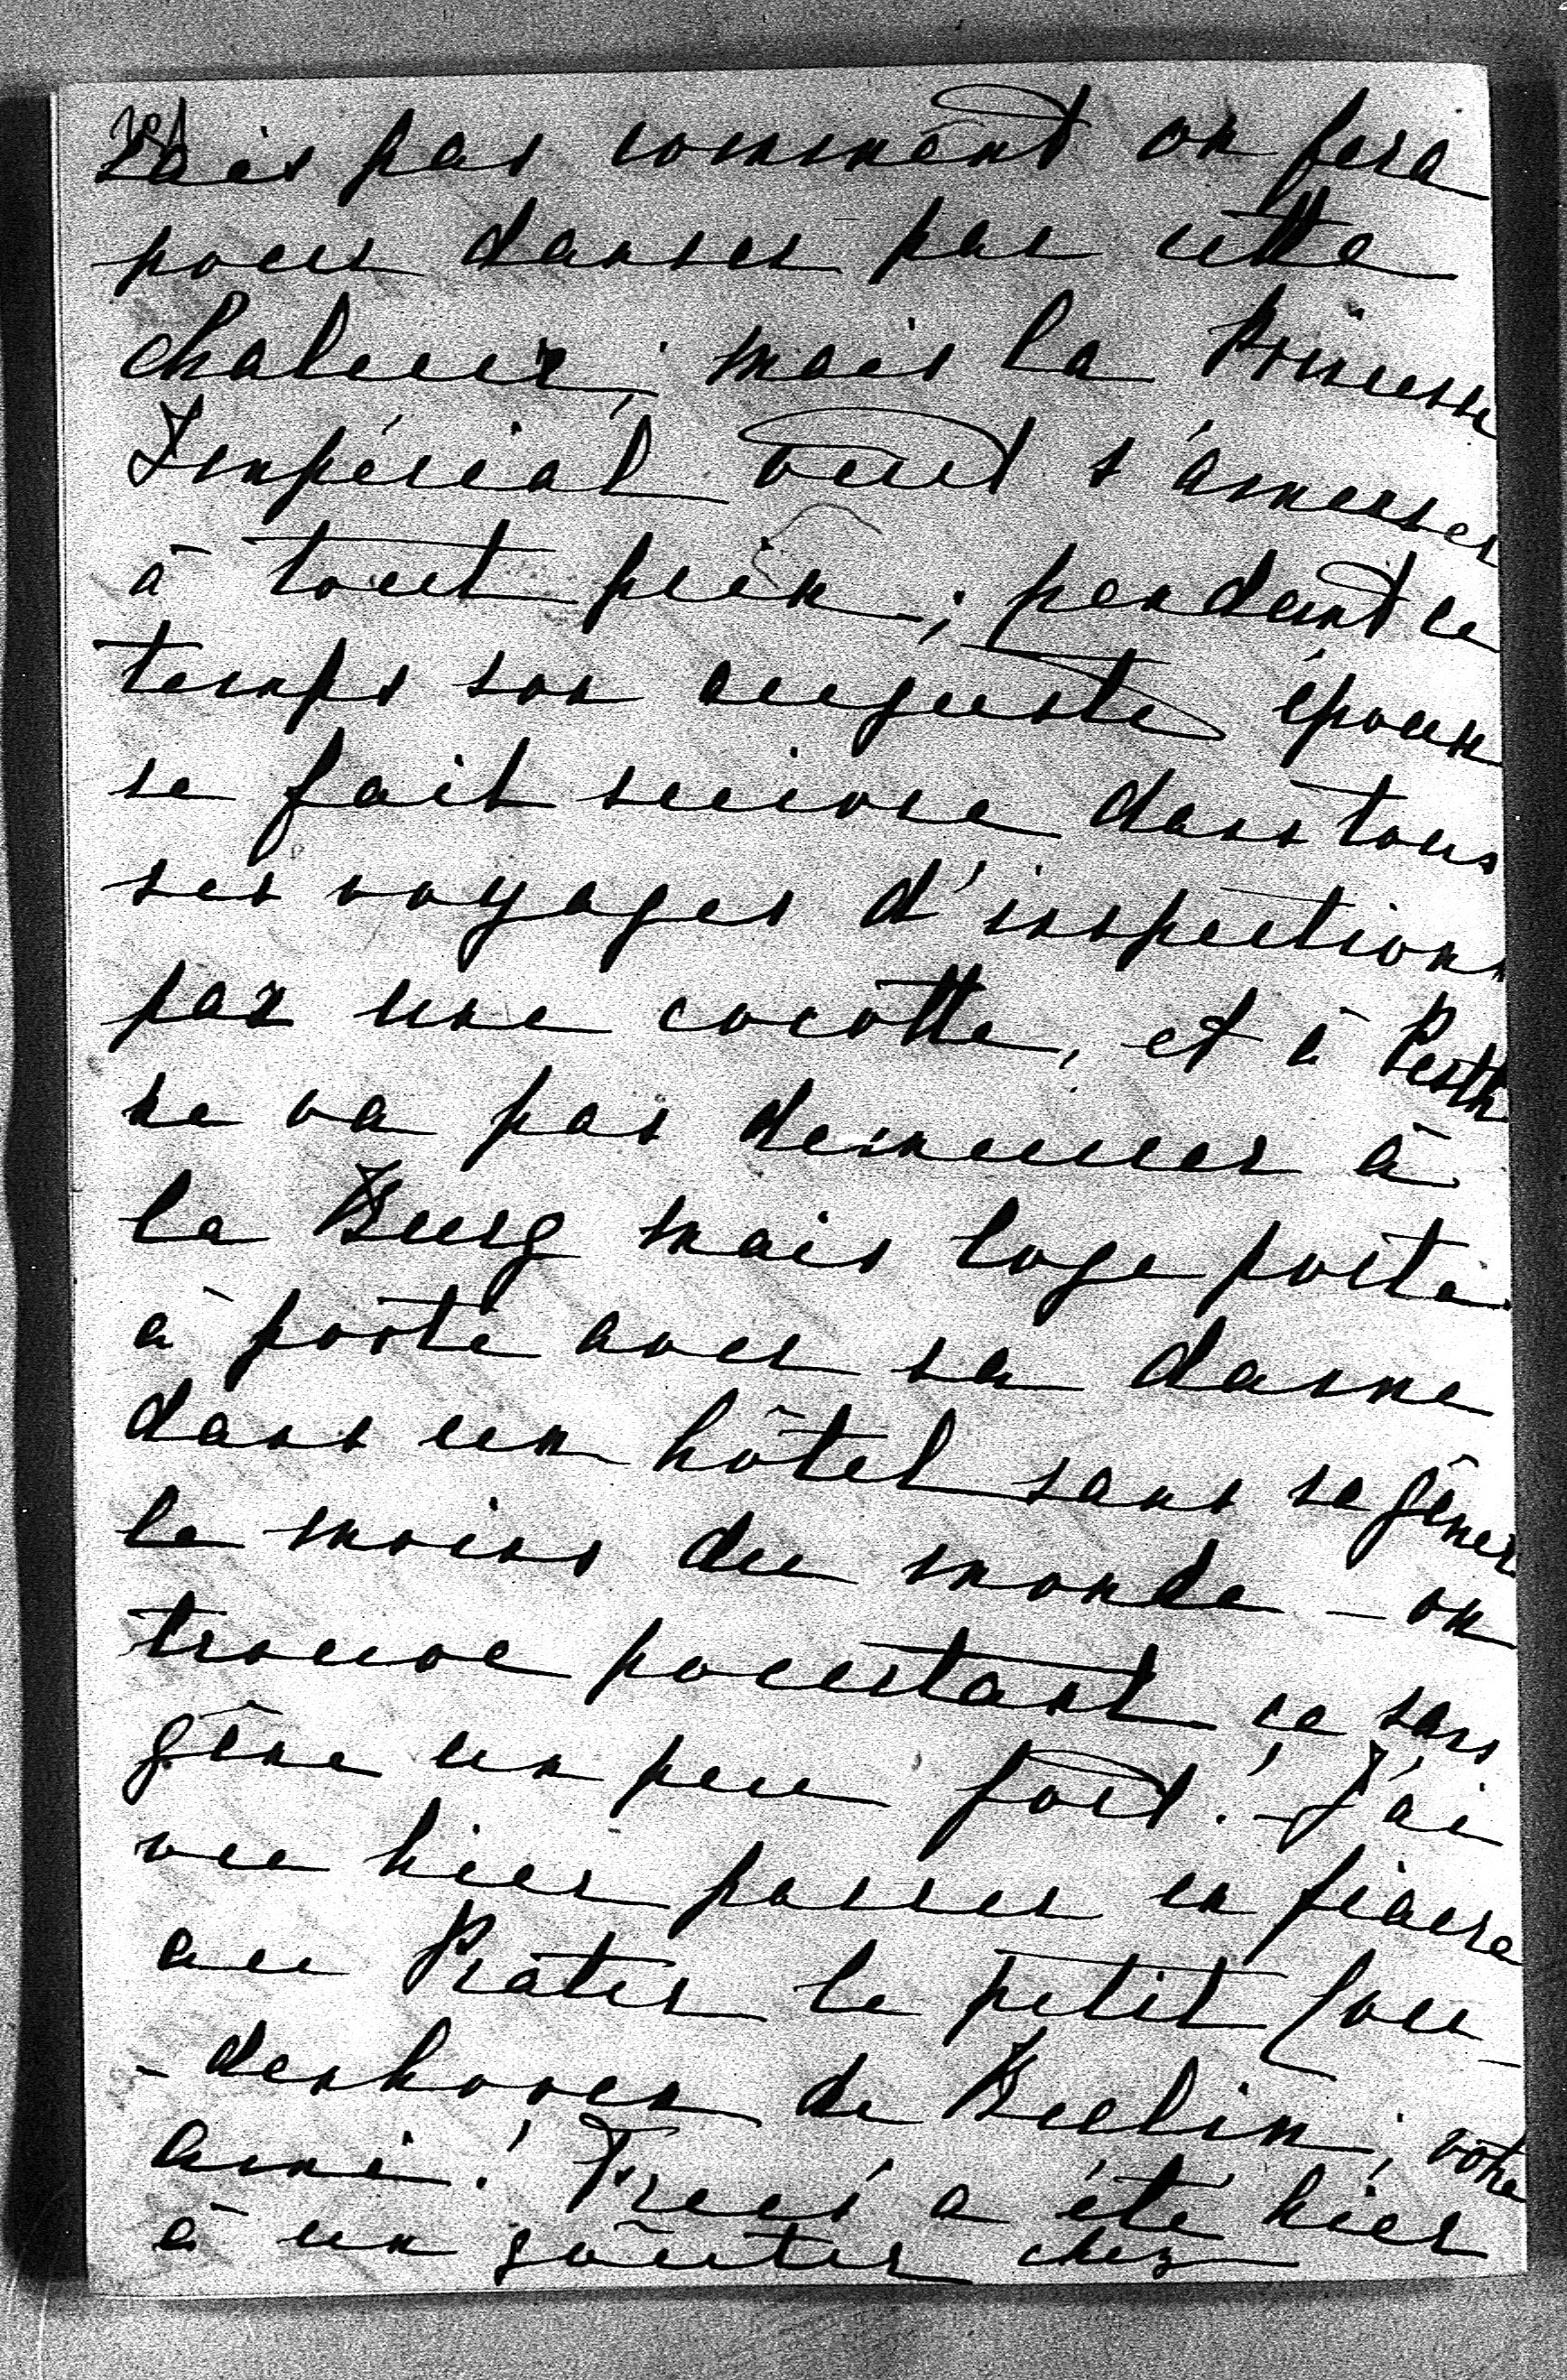 sais pas comment on fera
pour danser par cette
chaleur; mais la Princesse
Impérial veut s'amuser
à tout prix; pendant ce
temps son auguste époux
se fait suivre dans tous
ses voyages d'inspections
par une cocotte, et à Pesth
ne va pas demeurer à
la Burg mais loge porte
à porte avec sa dame
dans un hôtel sans se gêner
le moins du monde – on
trouve pourtant ce sans
gêne un peu fort! – J'ai
vu hier passer en fiacre
au Prater le petit Cou-
-denhoven de Berlin, votre
ami! a été hier
à un goûter chez